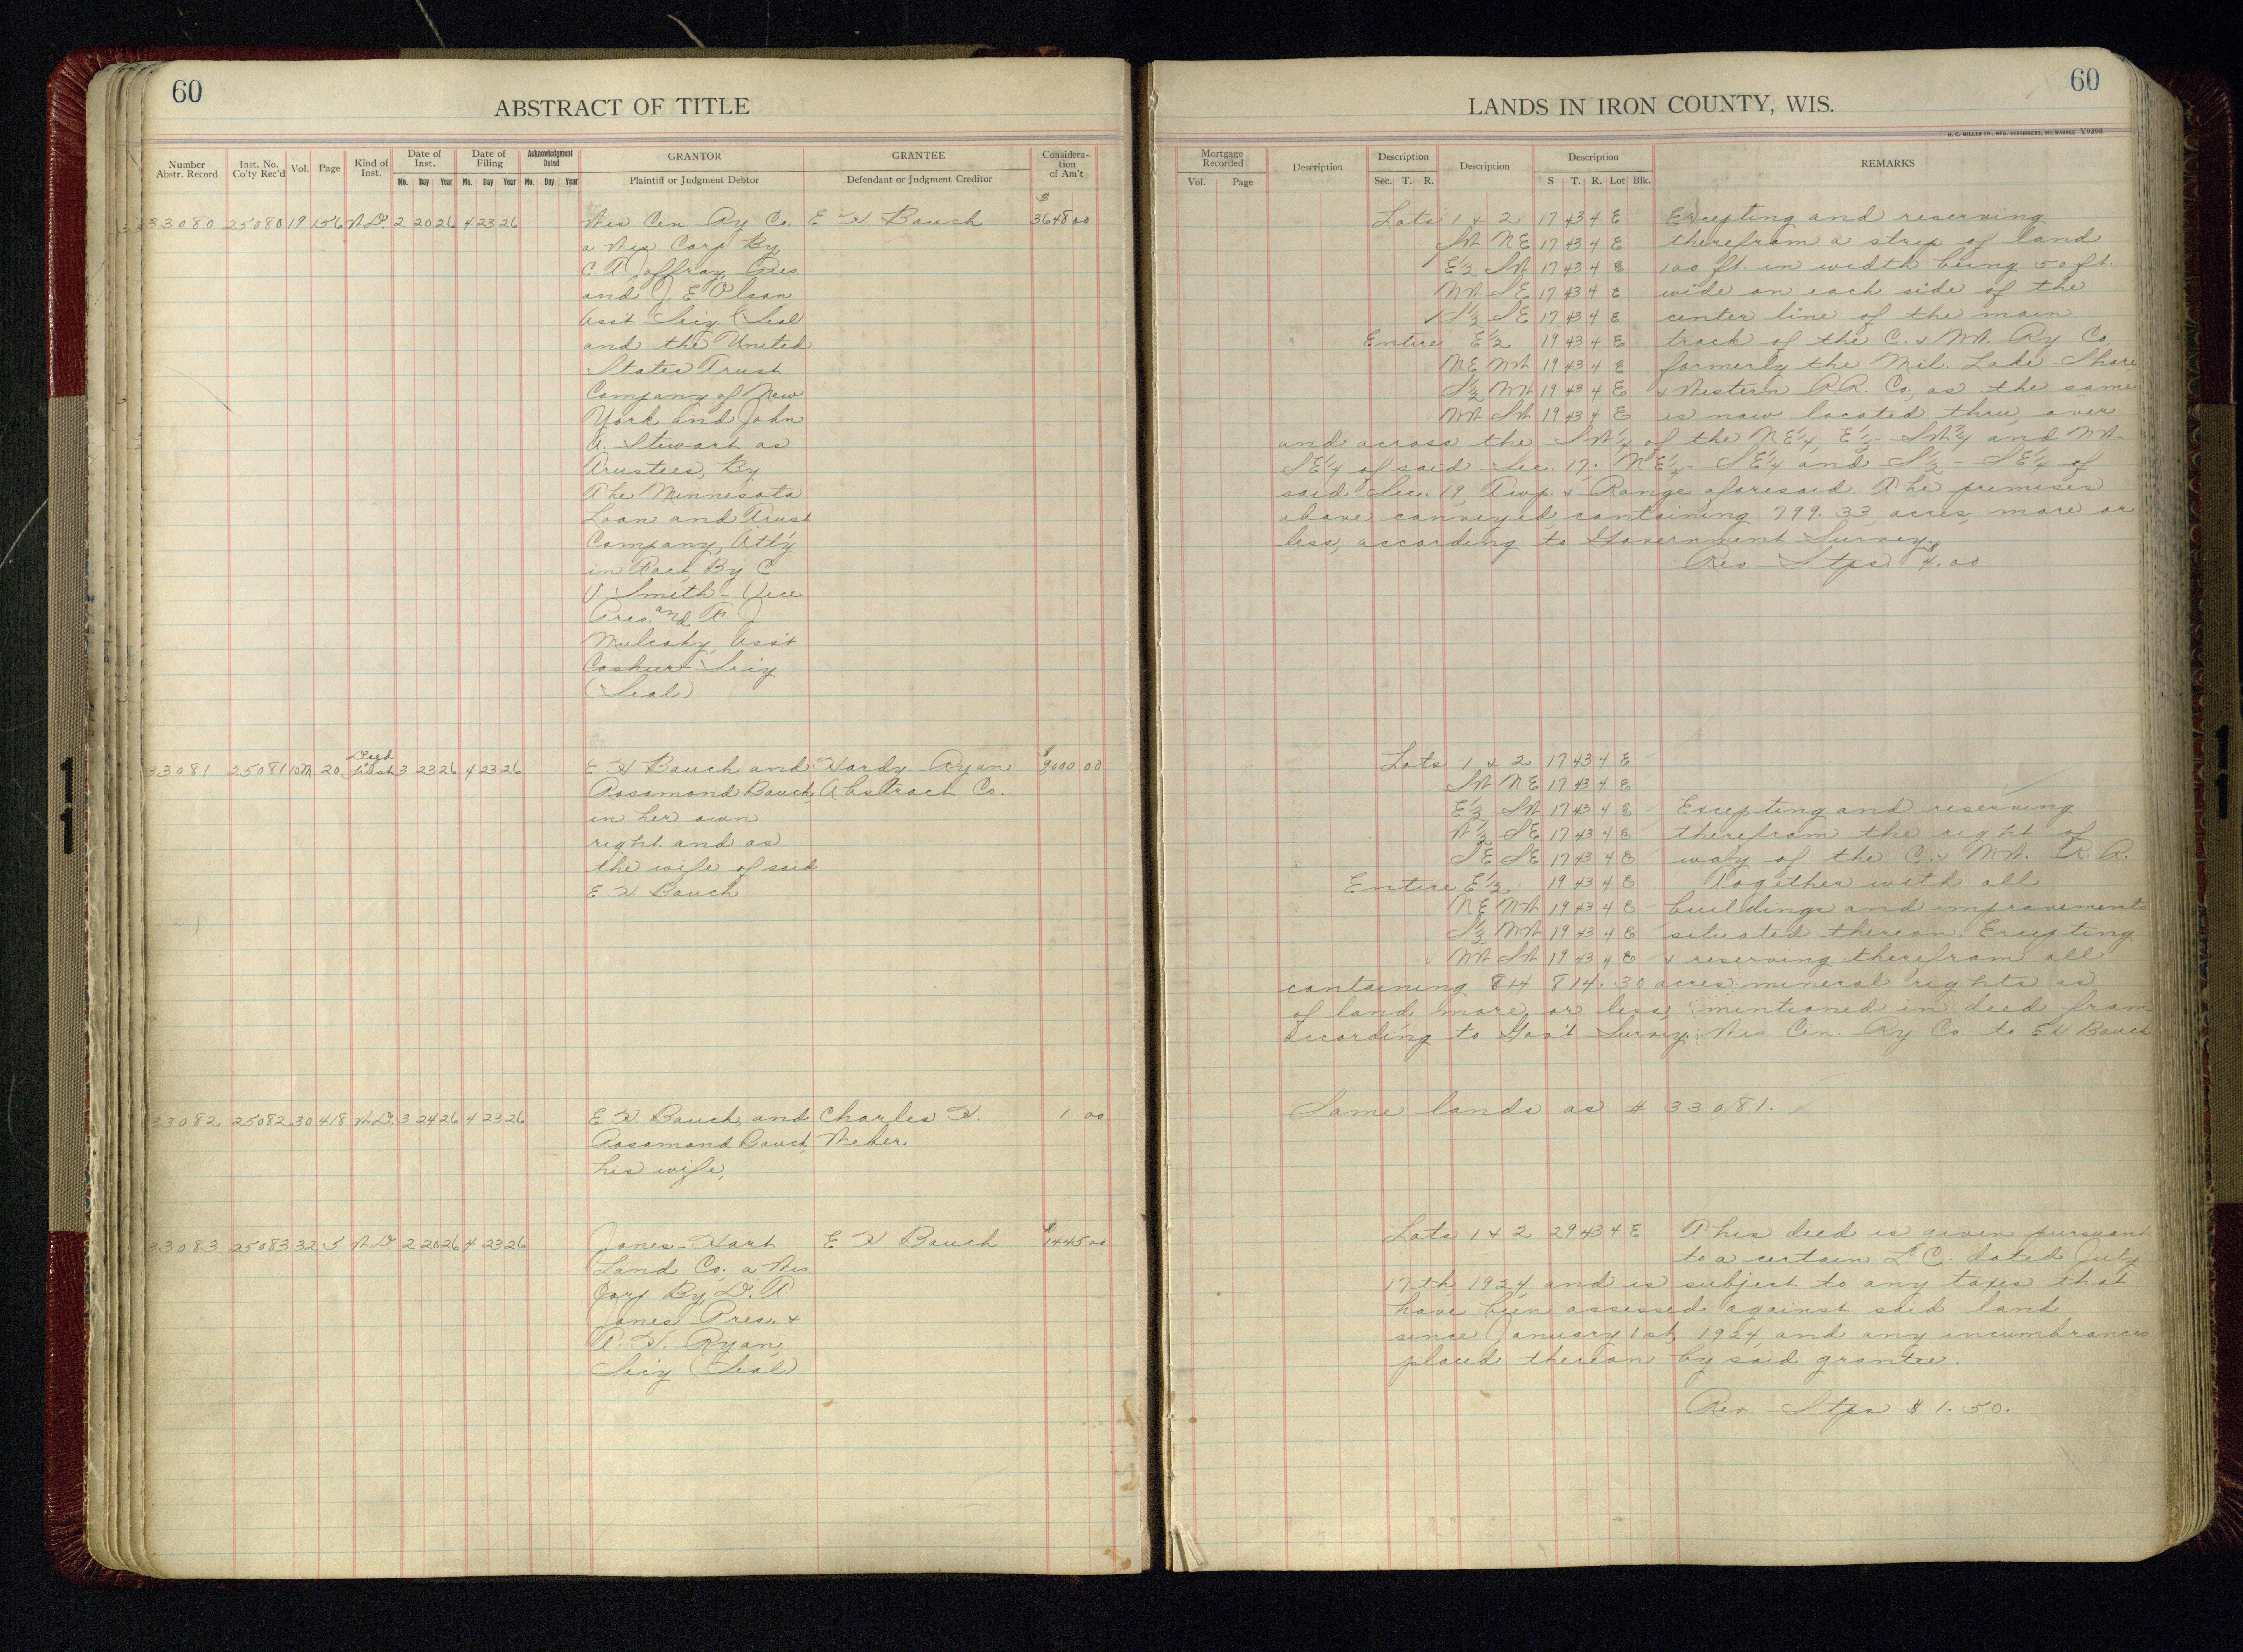 60
ABSTRACT OF TITLE
Number Abstr. Record
Inst. No. Co'ty Rec'd
Vol.
Page
Kind of Inst.
Date of Inst.
Mo. Day Year
Date of Filing
Mo. Day Year
Acknowledgment Dated
Mo. Day Year
GRANTOR
Plaintiff or Judgment Debtor
GRANTEE
Defendant or Judgment Creditor
Consideration of Am't
33080 25080 19 156 W.D. 2 20 26 4 23 26 Wis. Cen. Ry Co. E H Bauch $3648 00
a Wis Corp By
C. T Jaffray, Pres.
and J. E Olson
Ass't Sec'y (Seal)
and the United
States Trust
Company of New
York and John
A. Stewart as
Trustees, By
The Minnesota
Loan and Trust
Company, Att'y
in Fact By C
V. Smith - Vice
Pres. and F J
Mulcahy, Ass't
Cashier Sec'y
(Seal)
33081 25081 10M 20 Deed of trust 3 23 26 4 23 26 E H Bauch and Hardy-Ryan $9000 00
Rosamond Bauch, Abstract Co.
in her own
right and as
the wife of said
E H Bauch
33082 25082 30 418 W.D. 3 24 26 4 23 26 E H Bauch, and Charles H. 1 00
Rosamond Bauch, Weber
his wife,
33083 25083 32 5 W.D 2 20 26 4 23 26 Jones-Hart E H Bauch $1445 00
Land Co. a Wis.
Corp. By D. T.
Jones Pres. &
A. H. Ryan,
Sec'y (Seal)
60
LANDS IN IRON COUNTY, WIS.
H. C. MILLER CO., MFG. STATIONERS, MILWAUKEE Y9398
Mortgage Recorded
Vol. Page
Description
Description
Sec. T. R.
Description
Description
S T. R. Lot Blk.
REMARKS
Lots 1 & 2 17 43 4 E Excepting and reserving
SW NE 17 43 4 E therefrom a strip of land
E½ SW 17 43 4 E 100 ft. in width being 50 ft.
NW SE 17 43 4 E wide on each side of the
S½ SE 17 43 4 E center line of the main
Entire E½ 19 43 4 E track of the C. & N.W. Ry Co
NE NW 19 43 4 E formerly the Mil. Lake Shore
S½ NW 19 43 4 E & Western R.R. Co, as the same
NW SW 19 43 4 E is now located thru, over
and across the SW¼ of the NE¼, E½ - SW¼ and NW-
SE¼ of said Sec. 17. NE¼ - SE¼ and S½ - SE¼ of
said Sec. 19, Twp. & Range aforesaid. The premises
above conveyed, containing 799.33 acres, more or
less, according to Government Survey.
Rev Stps $4.00
Lots 1 & 2 17 43 4 E
SW NE 17 43 4 E
E½ SW 17 43 4 E Excepting and reserving
W½ SE 17 43 4 E therefrom the right of
SE SE 17 43 4 E way of the C. & N.W. R.R.
Entire E½ 19 43 4 E Together with all
NE NW 19 43 4 E buildings and improvements
S½ NW 19 43 4 E situated thereon. Excepting
NW SW 19 43 4 E & reserving therefrom all
containing 814 814.30 acres mineral rights as
of land more or less, mentioned in deed from
according to Gov't Survey. Wis. Cen. Ry Co. to E H Bauch
Same lands as # 33081.
Lots 1 & 2 29 43 4 E This deed is given pursuant
to a certain L. C. dated July
17th, 1924, and is subject to any taxes that
have been assessed against said land
since January 1st, 1924, and any incumbrances
placed thereon by said grantee.
Rev. Stps $1.50.